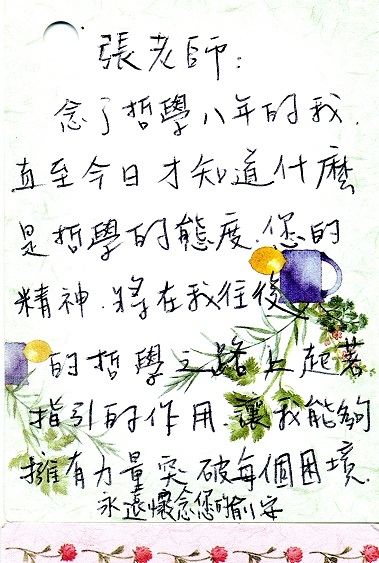 張老師：
念了哲學八年的我，
直至今日才知道什麼
是哲學的態度，您的
精神，將在我往後
的哲學之路上起著
指引的作用，讓我能夠
擁有力量突破每個困境．
永遠懷念您的